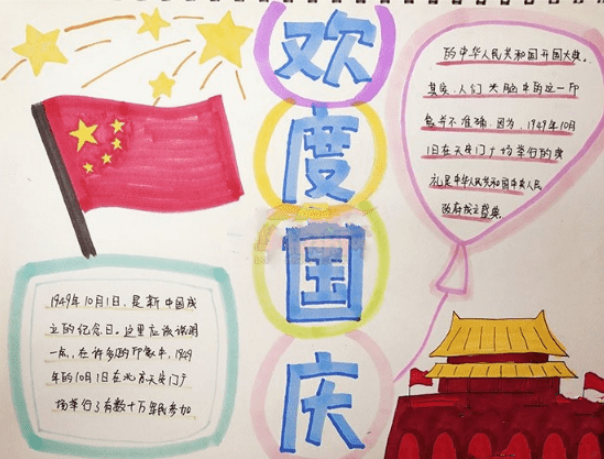 欢
度
国
庆
1949年10月1日,是新中国成
立的纪念日。这里应该说明
一点,在许多的印象中,1949
年的10月1日在北京天安门广
场举行了有数十万军民参加
的中华人民共和国开国大典。
其实,人们头脑中的这一印
象并不准确。因为,1949年10月
1日在天安门广场举行的典
礼是中华人民共和国中央人民
政府成立盛典